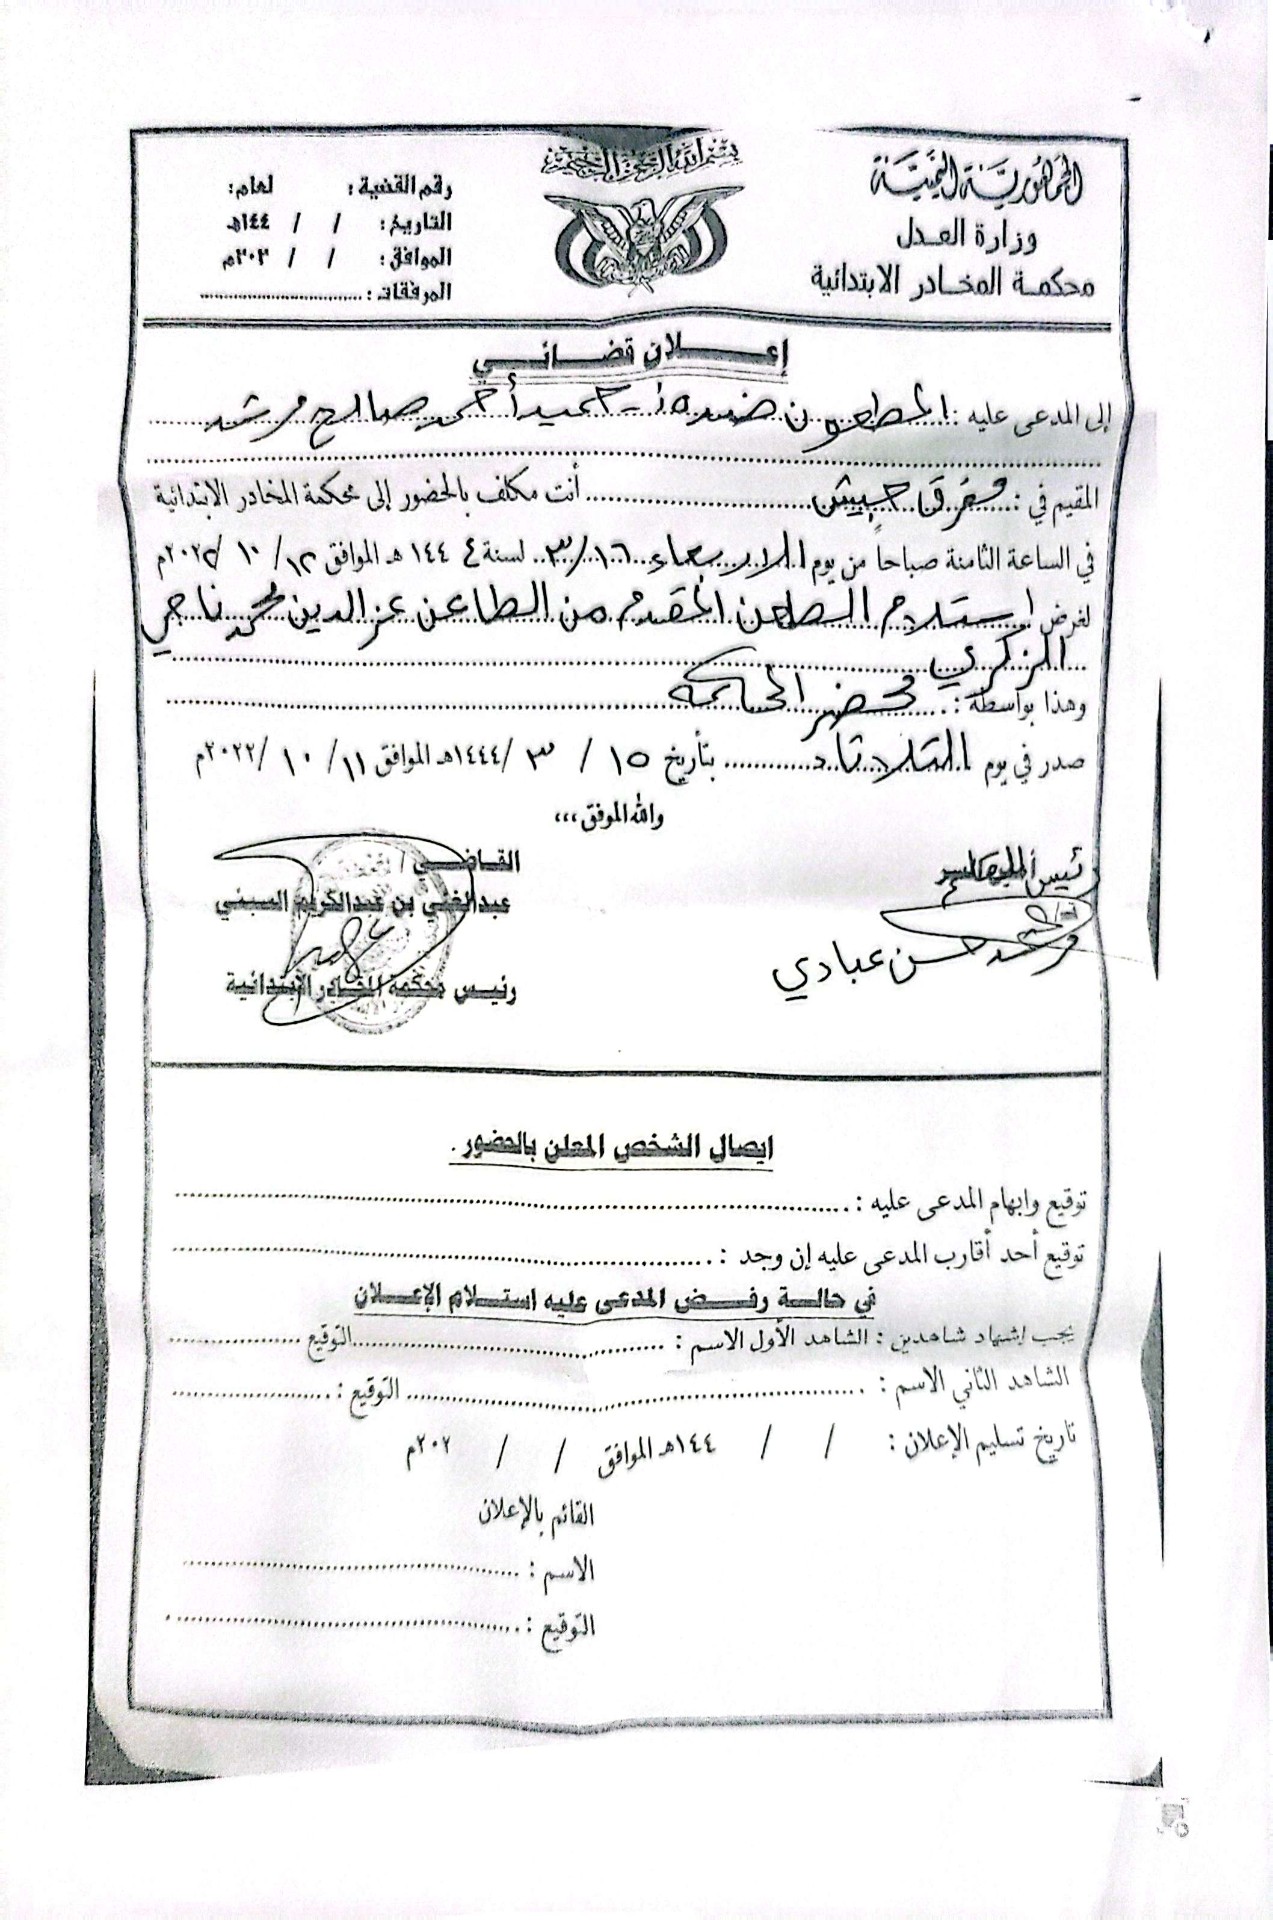 بسم الله الرحمن الرحيم
الجمهورية اليمنية
وزارة العدل
محكمة المخادر الابتدائية
رقم القضية : لعام:
التاريخ: / / ١٤٤هـ
الموافق: / / ٢٠٢م
المرفقات :
إعلان قضائي
إلى المدعى عليه : المطعون ضده / حميد أحمد صالح مرشد
المقيم في : مفرق حبيش أنت مكلف بالحضور إلى محكمة المخادر الابتدائية
في الساعة الثامنة صباحاً من يوم الاربعاء ١٦/٣ لسنة ١٤٤٤ هـ الموافق ١٢/ ١٠ /٢٠٢٢م
لغرض استلام الطعن المقدم من الطاعن عز الدين محمد ناجي
الزكري
وهذا بواسطة : محضر المحكمة
صدر في يوم الثلاثاء بتأريخ ١٥ / ٣ /١٤٤٤هـ الموافق ١١/ ١٠ /٢٠٢٢م
والله الموفق ،،،
القاضي /
عبدالغني بن عبدالكريم السبئي
رئيس محكمة المخادر الابتدائية
رئيس
حسن عبادي
ايصال الشخص المعلن بالحضور .
توقيع وابهام المدعى عليه :
توقيع أحد أقارب المدعى عليه إن وجد :
في حالة رفض المدعى عليه استلام الإعلان
يجب إشهاد شاهدين : الشاهد الأول الاسم : التوقيع
الشاهد الثاني الاسم : التوقيع :
تاريخ تسليم الإعلان : / / ١٤٤هـ الموافق / / ٢٠٢م
القائم بالإعلان
الاسم :
التوقيع :